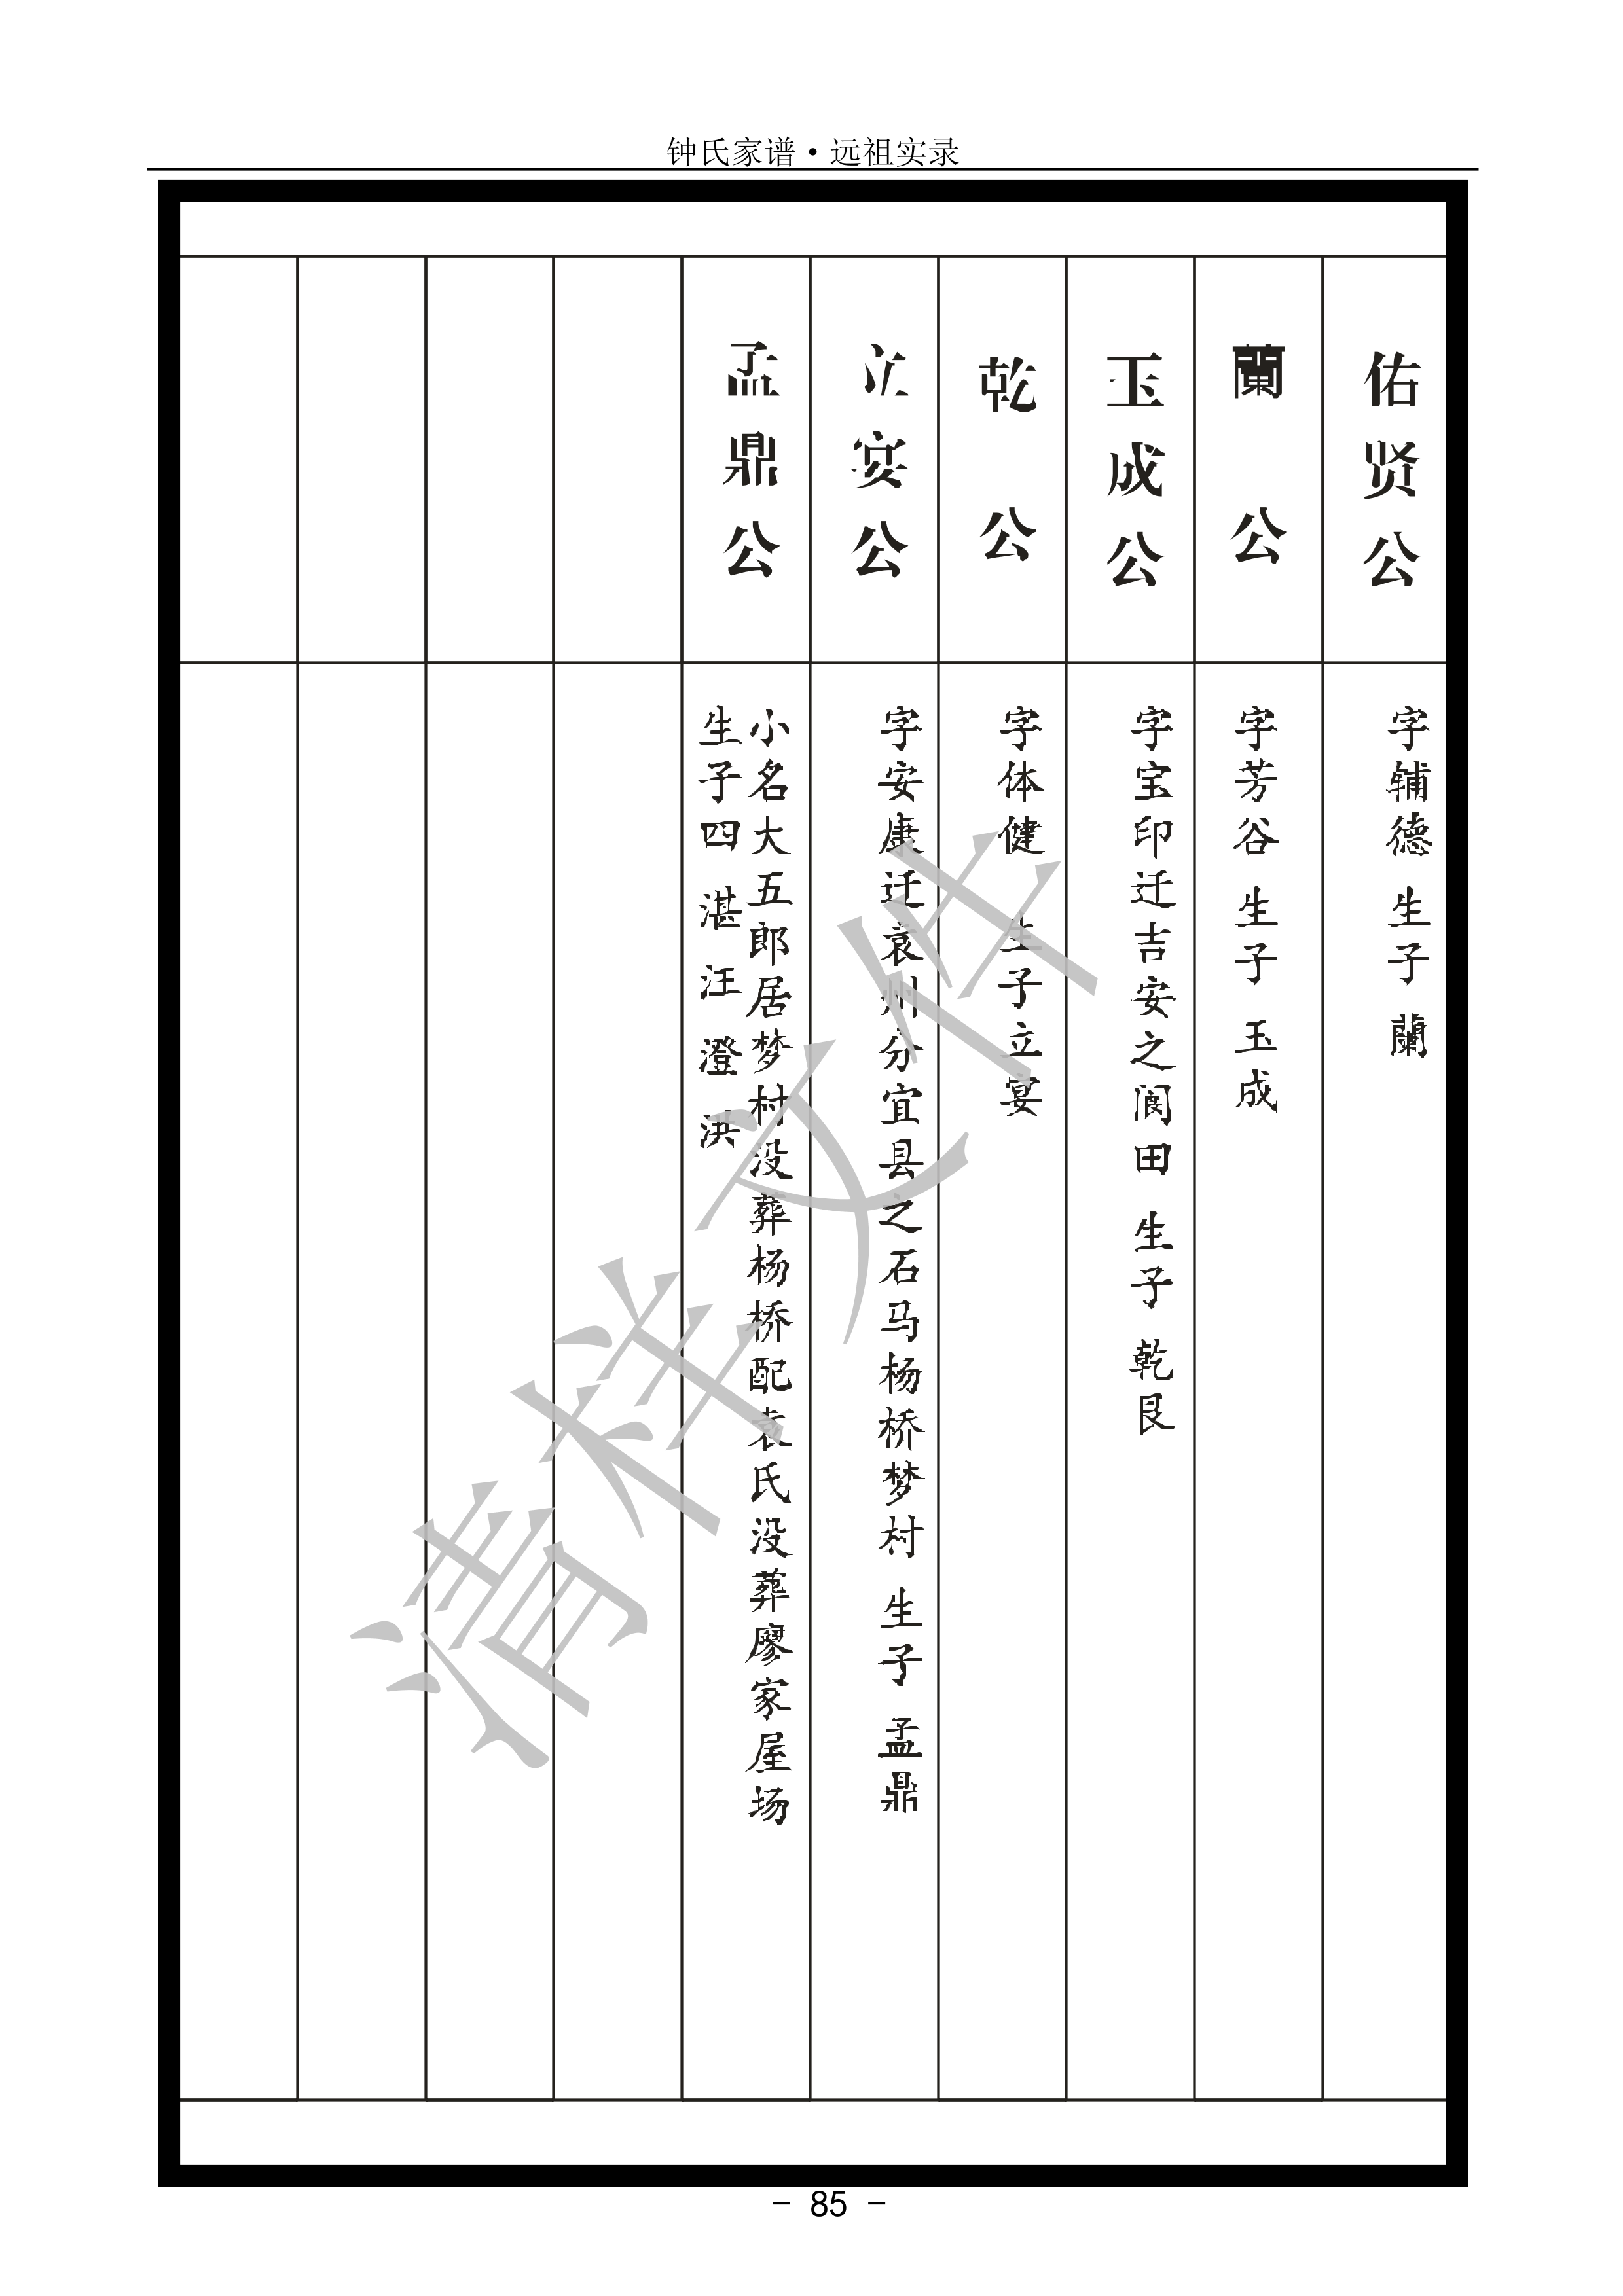 钟氏家谱·远祖实录
佑贤公
字辅德 生子 蘭
蘭 公
字芳谷 生子 玉成
玉成公
字宝印迁吉安之阆田 生子 乾艮
乾 公
字体健 生子立宴
立宴公
字安康迁袁州分宜县之石马杨桥梦村 生子 孟鼎
孟鼎公
小名大五郎居梦村没葬杨桥配袁氏没葬廖家屋场
生子四 湛 汪 澄 洪
清样文件
- 85 -